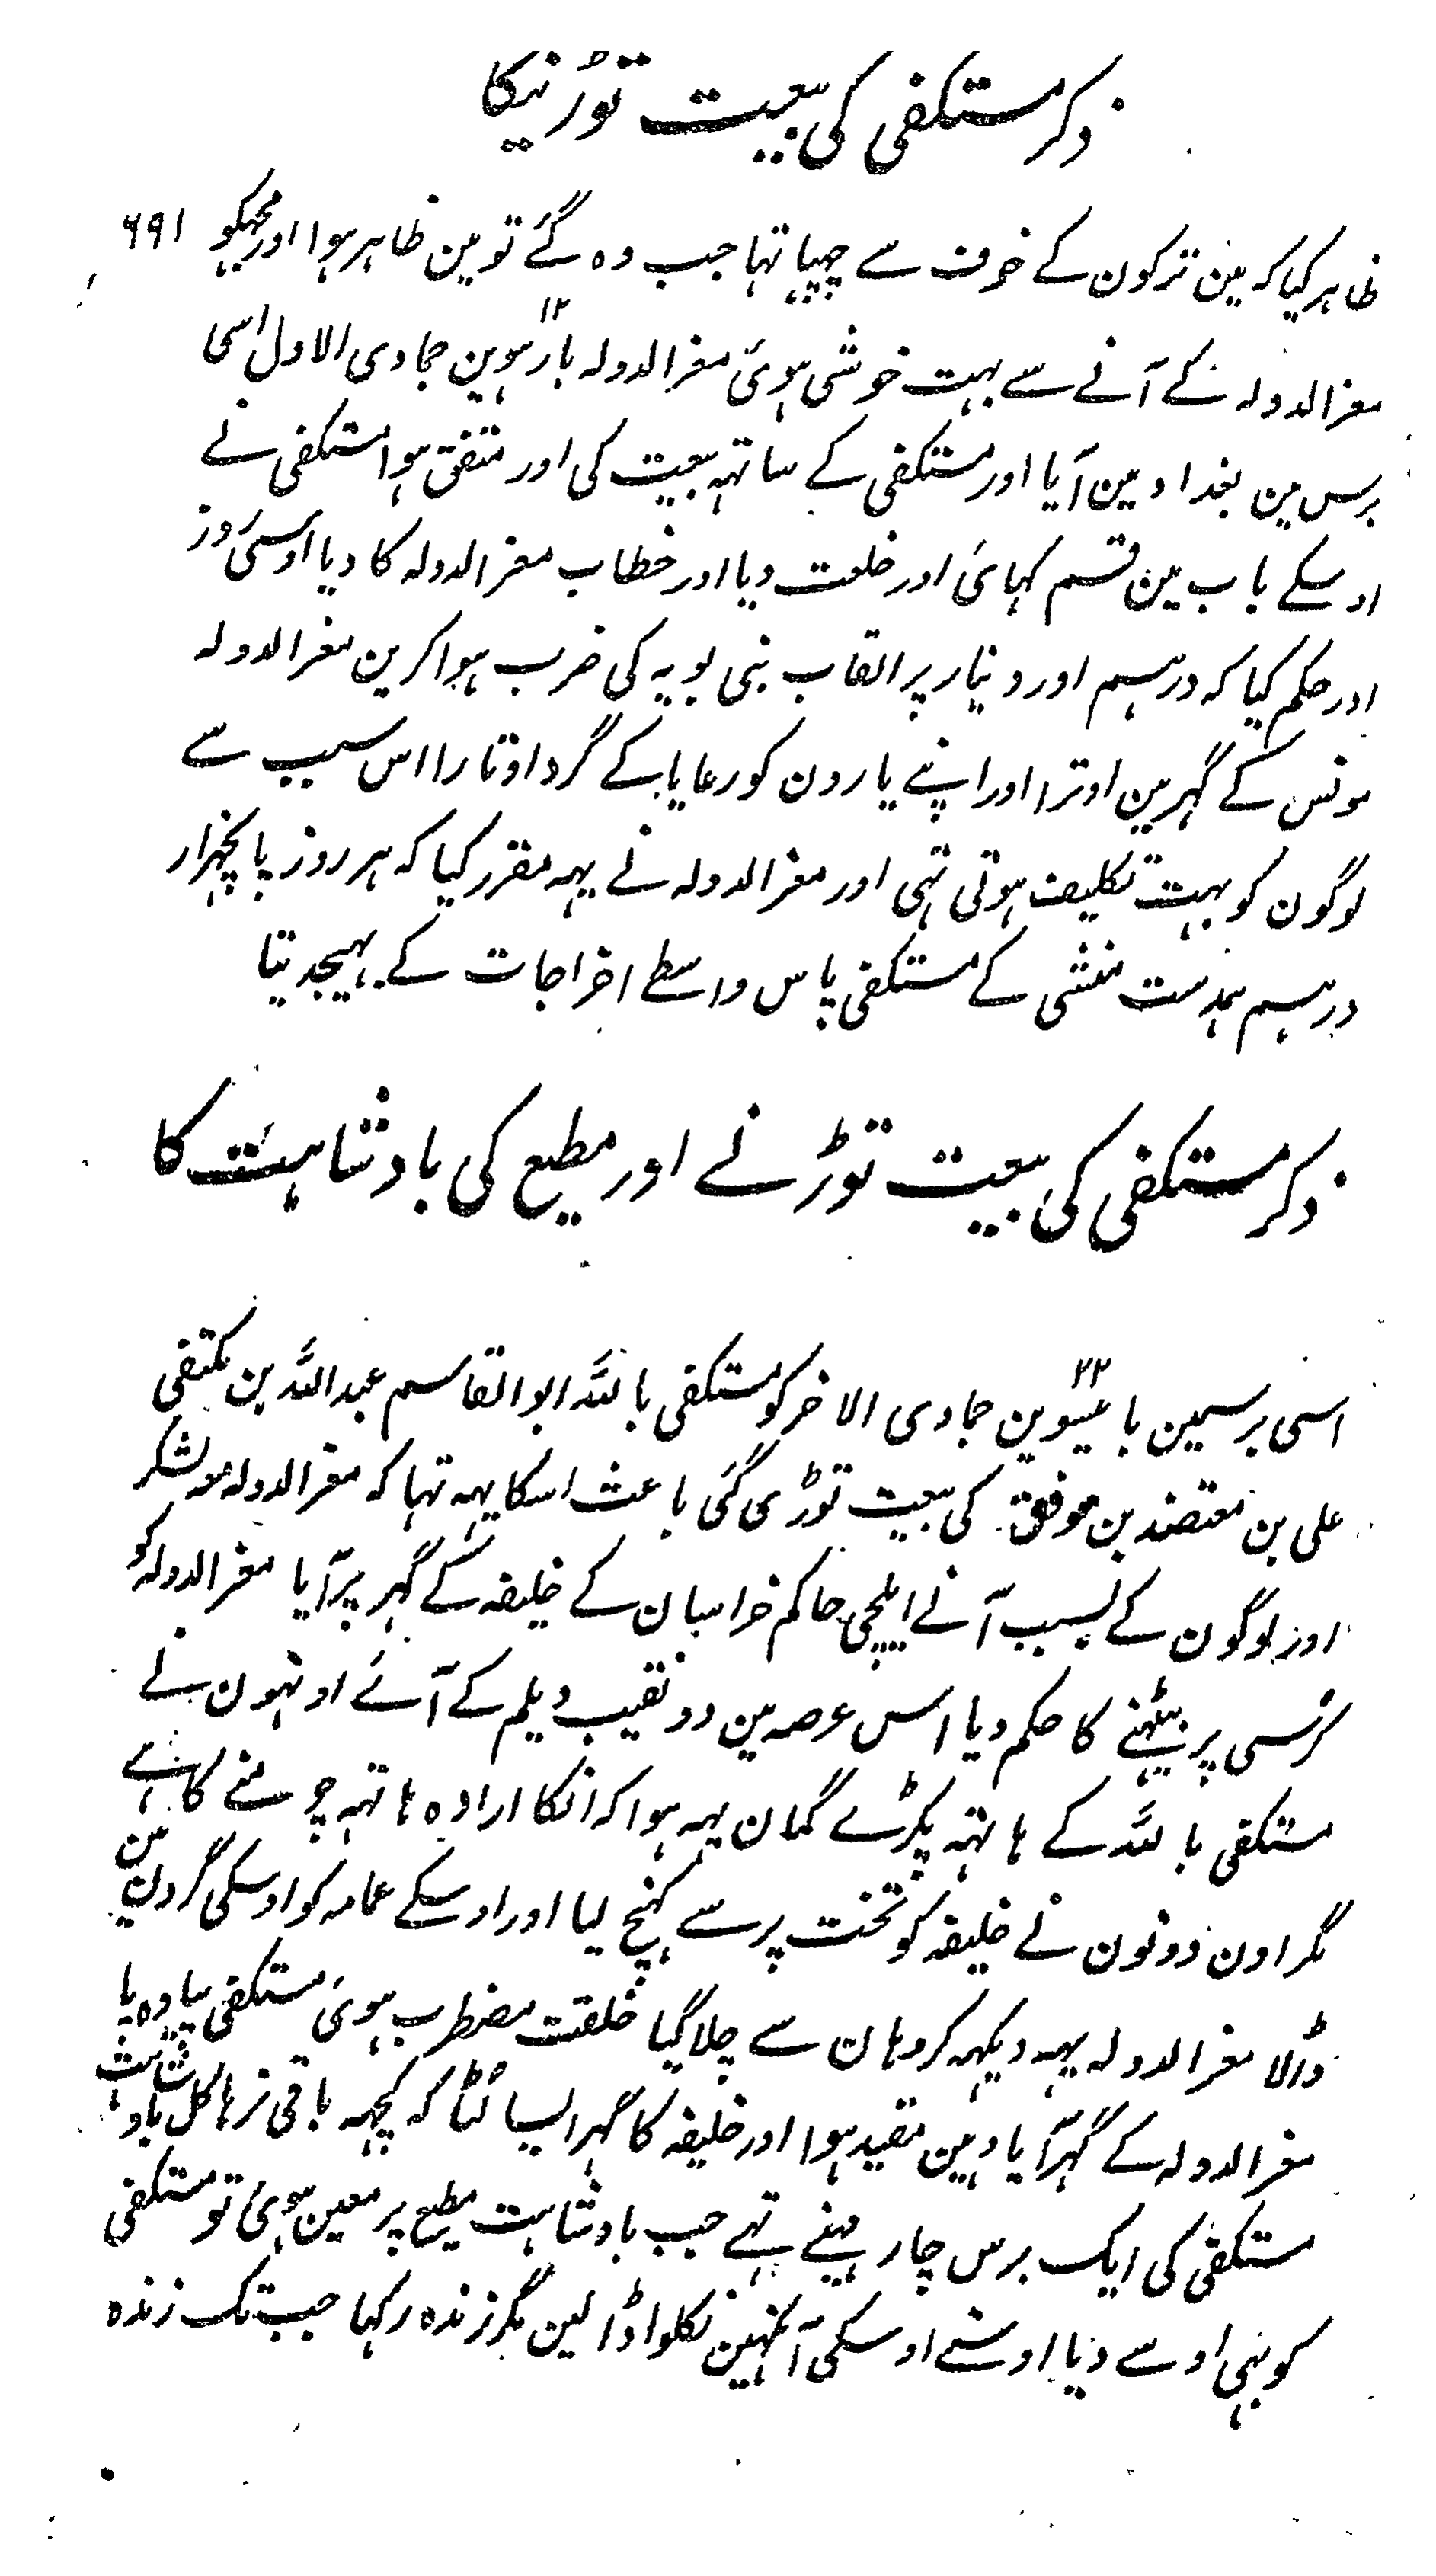 ذکر مستکفی کی بیعت توڑنیکا
۶۹۱
ظاہر کیا کہ مین ترکون کے خوف سے چھپا تہا جب وہ گئے تو مین ظاہر ہوا اور مجہکو
معزالدولہ کے آنے سے بہت خوشی ہوئی معزالدولہ بارہوین ۱۲ جمادی الاول اسی
برس مین بغداد مین آیا اور مستکفی کے ساتہہ بیعت کی اور متفق ہوا مستکفی نے
اوسکے باب مین قسم کہائی اور خلعت دیا اور خطاب معزالدولہ کا دیا اوسی روز
اور حکم کیا کہ درہم اور دینار پر القاب بنی بویہ کی ضرب ہوا کرین معزالدولہ
مونس کے گہر مین اوترا اور اپنے یارون کو رعایا کے گرد اوتارا اس سبب سے
لوگون کو بہت تکلیف ہوتی تہی اور معزالدولہ نے یہہ مقرر کیا کہ ہر روز پانچہزار
درہم بدست منشی کے مستکفی پاس واسطے اخراجات کے بہیجدیتا
ذکر مستکفی کی بیعت توڑنے اور مطیع کی بادشاہت کا
اسی برسمین بائیسوین ۲۲ جمادی الاخر کو مستکفی باللہ ابو القاسم عبداللہ بن مکتفی
علی بن معتضد بن موفق کی بیعت توڑی گئی باعث اسکا یہہ تہا کہ معزالدولہ معہ لشکر
اور لوگون کے بسبب آنے ایلچی حاکم خراسان کے خلیفہ کے گہر پر آیا معزالدولہ کو
کرسی پر بیٹہنے کا حکم دیا اس عرصہ مین دو نقیب دیلم کے آئے اونہون نے
مستکفی باللہ کے ہاتہہ پکڑے گمان یہہ ہوا کہ انکا ارادہ ہاتہہ چومنے کا ہے
مگر اون دونون نے خلیفہ کو تخت پر سے کہنچ لیا اور اوسکے عمامہ کو اوسکی گردن مین
ڈالا معزالدولہ یہہ دیکہہ کر وہان سے چلا گیا خلقت مضطرب ہوئی مستکفی پیادہ پا
معزالدولہ کے گہر آیا وہین مقید ہوا اور خلیفہ کا گہر ایسا لٹا کہ کچہہ باقی نرہا کل بادشاہت
مستکفی کی ایک برس چار مہینے تہے جب بادشاہت مطیع پر معین ہوئی تو مستکفی
کو بہی اوسے دیا اوسنے اوسکی آنکہین نکلوا ڈالین مگر زندہ رکہا جب تک زندہ